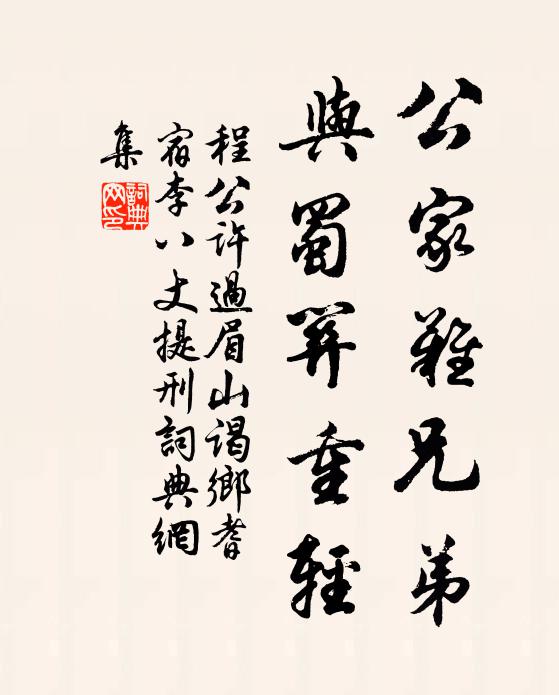 公家難兄弟
與蜀算重輕
程公許過眉山謁鄉耆
宿李八丈提刑詞典網
集
詞典网印